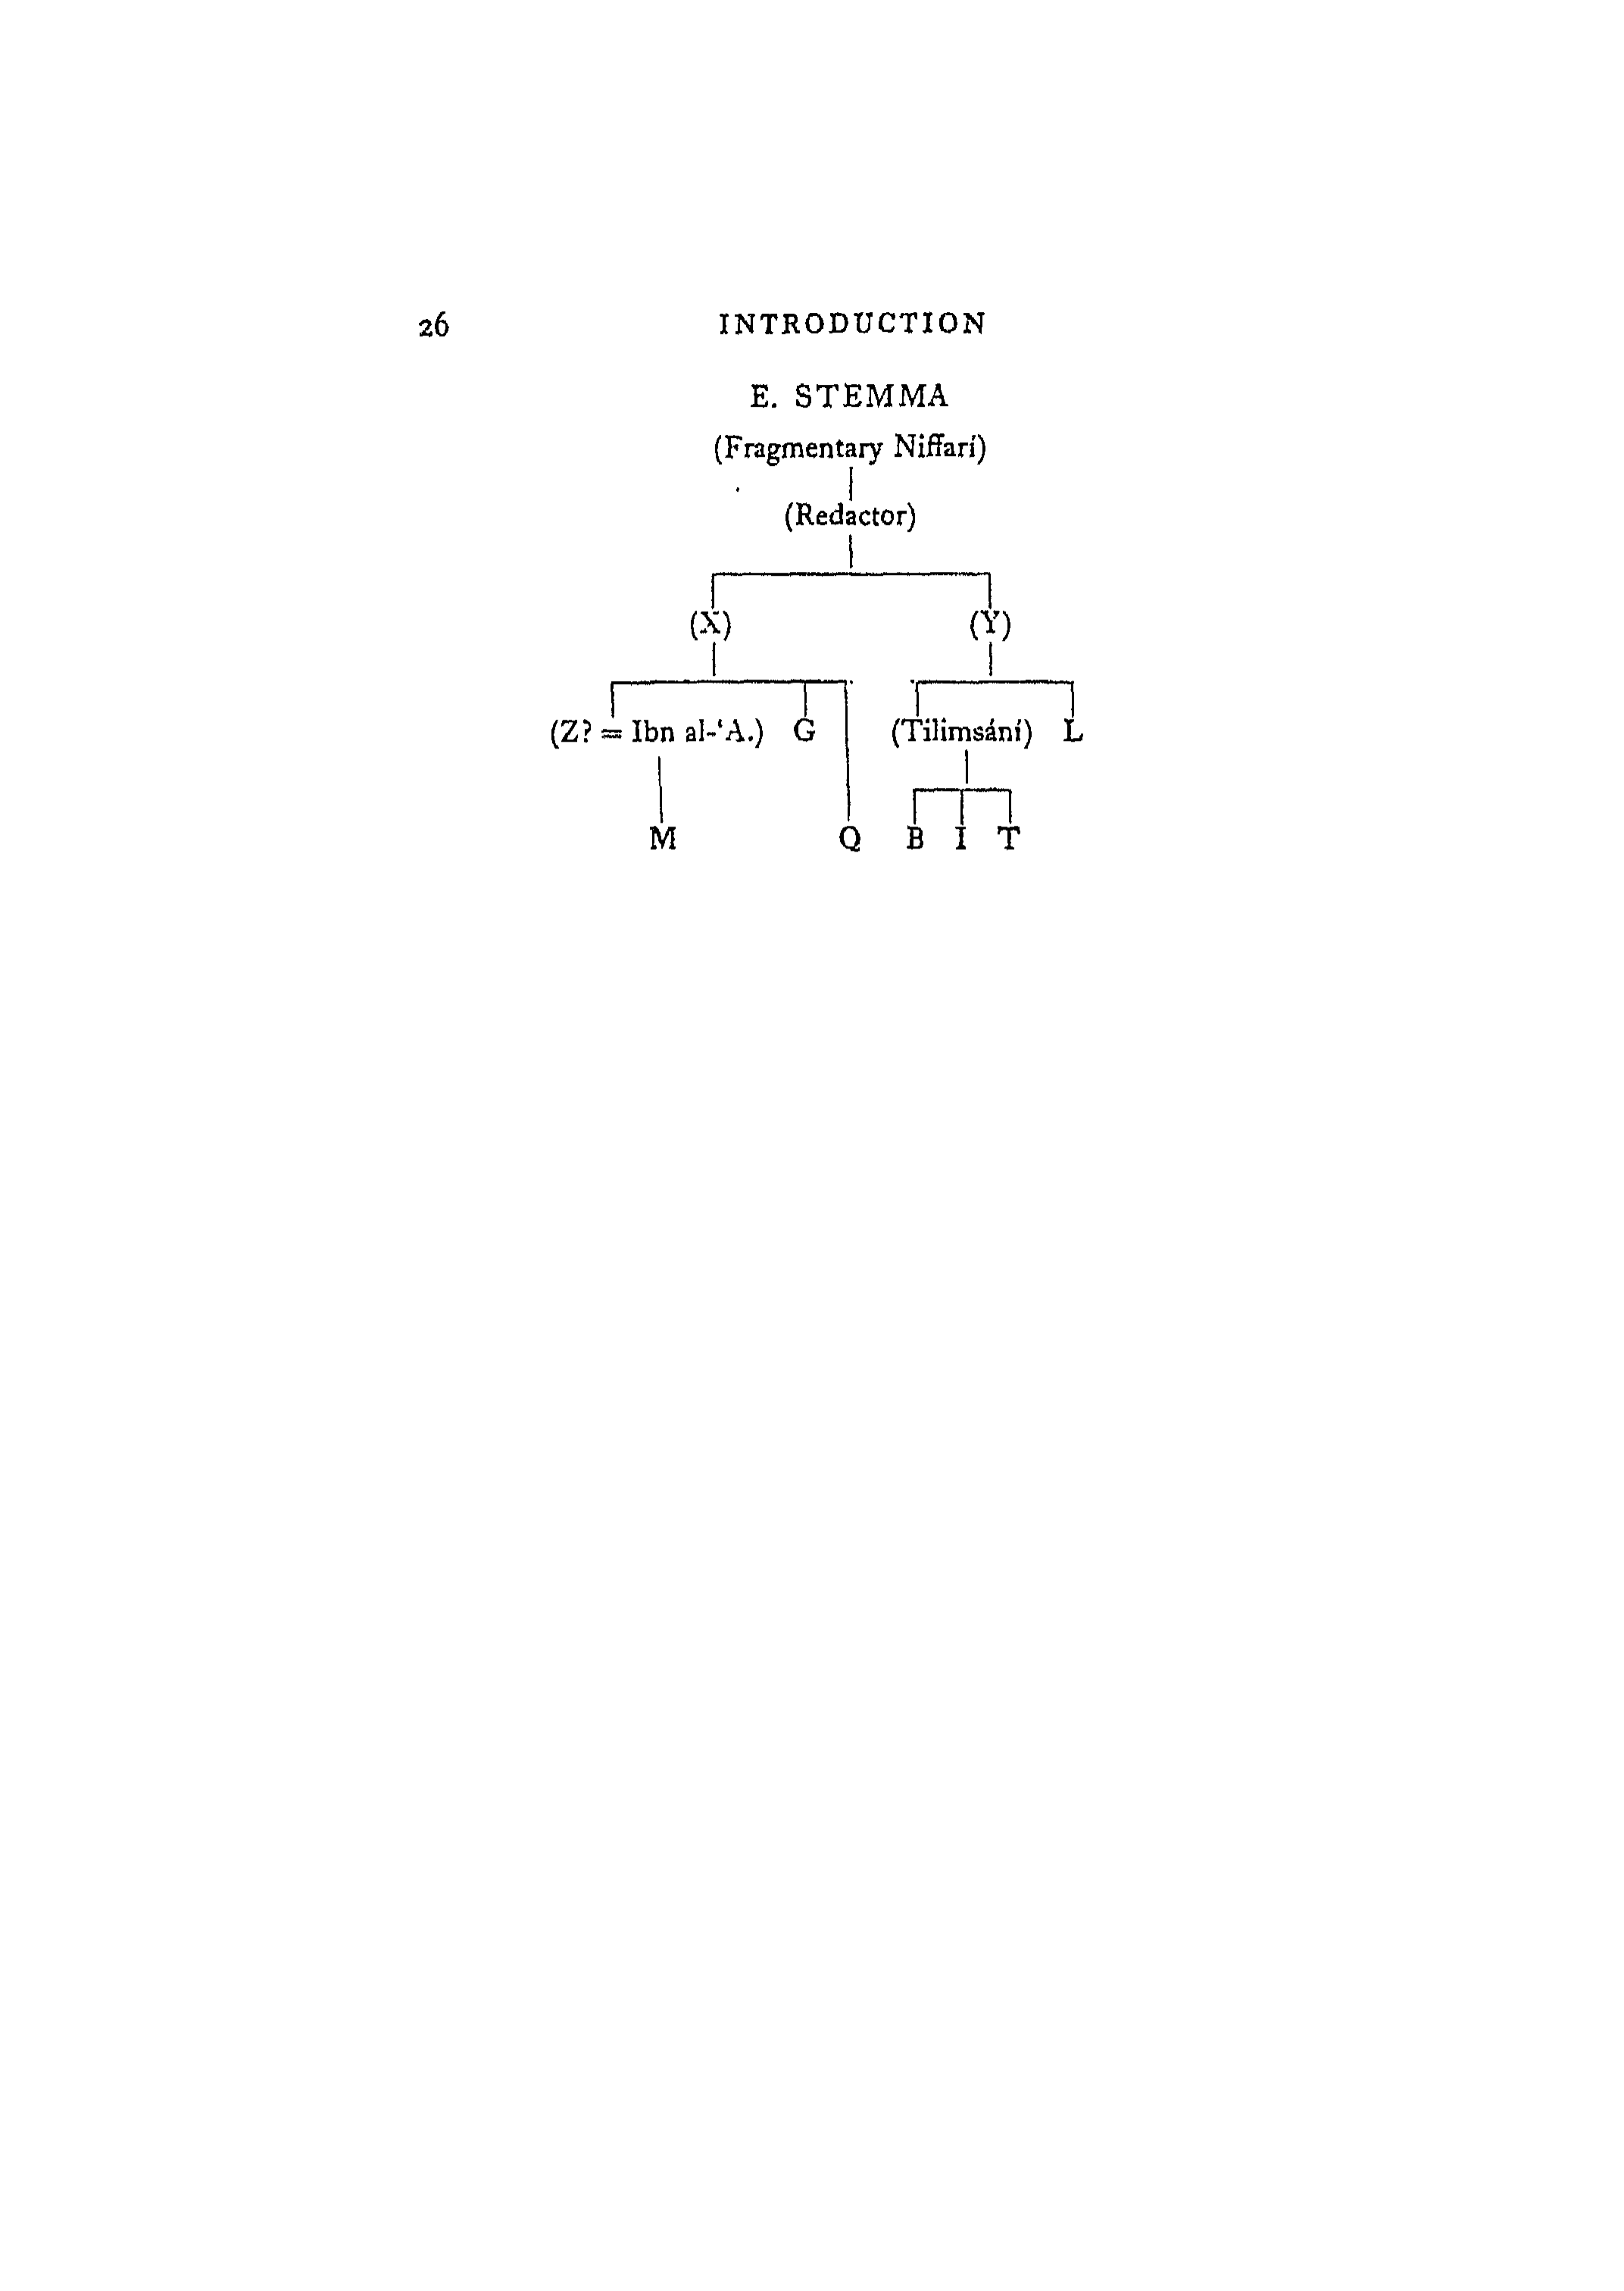 26 INTRODUCTION
E. STEMMA
(Fragmentary Niffarí)
(Redactor)
(X) (Y)
(Z? = Ibn al-‘A.) G (Tilimsání) L
M Q B I T